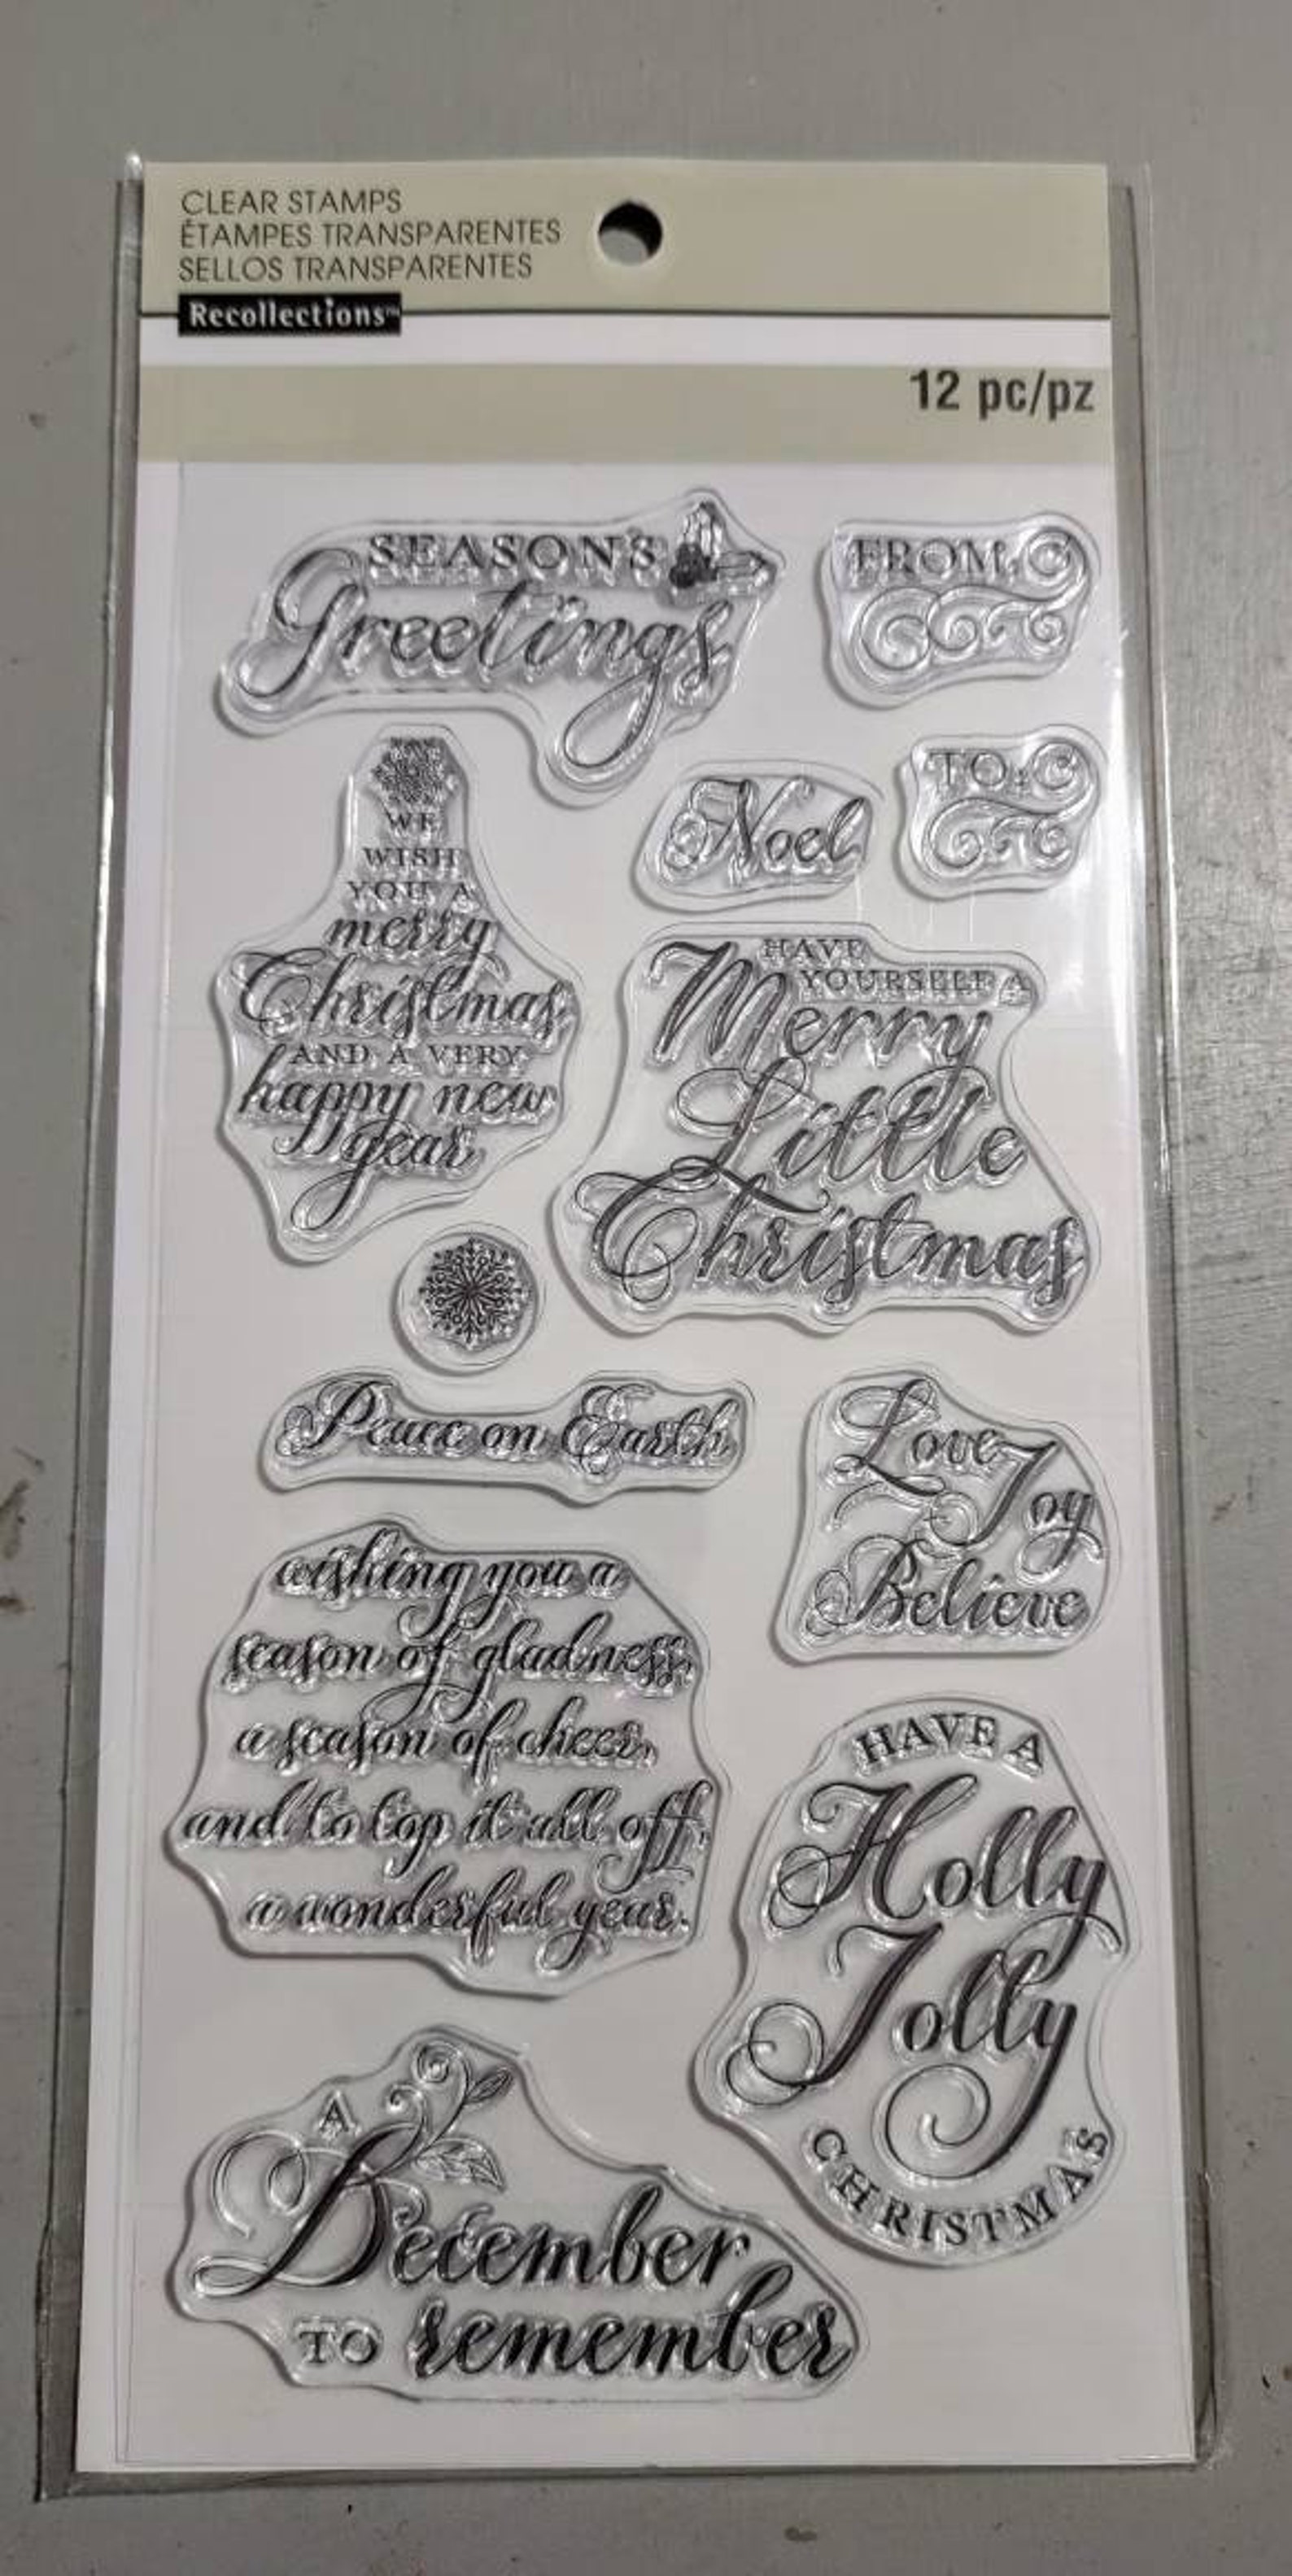 CLEAR STAMPS
ÉTAMPES TRANSPARENTES
SELLOS TRANSPARENTES
Recollections™
12 pc/pz
SEASON'S
Greetings
FROM:
TO:
Noel
WE
WISH
YOU A
merry
Christmas
AND A VERY
happy new
year
HAVE
YOURSELF A
Merry
Little
Christmas
Peace on Earth
Love
Joy
Believe
wishing you a
season of gladness,
a season of cheer,
and to top it all off,
a wonderful year.
HAVE A
Holly
Jolly
CHRISTMAS
A
December
TO remember